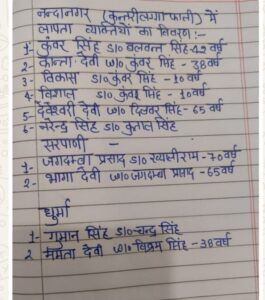 नन्दानगर (कुन्तरीलगा फाली) में
लापता व्यक्तियों का विवरण:-
1- कुंवर सिंह S/O बलवन्त सिंह-42 वर्ष
2- कान्ता देवी W/O कुंवर सिंह - 38 वर्ष
3- विकास S/O कुंवर सिंह - 10 वर्ष
4- विशाल S/O कुंवर सिंह - 10 वर्ष
5 देवेश्वरी देवी W/O दिलवर सिंह - 65 वर्ष
6- नरेन्द्र सिंह S/O कुताल सिंह
सरपाणी -
1- जगदम्बा प्रसाद S/O ख्यालीराम - 70 वर्ष
2- भागा देवी W/O जगदम्बा प्रसाद - 65 वर्ष
धुर्मा
1- गुमान सिंह S/O चन्द्र सिंह
2 ममता देवी W/O विक्रम सिंह - 38 वर्ष